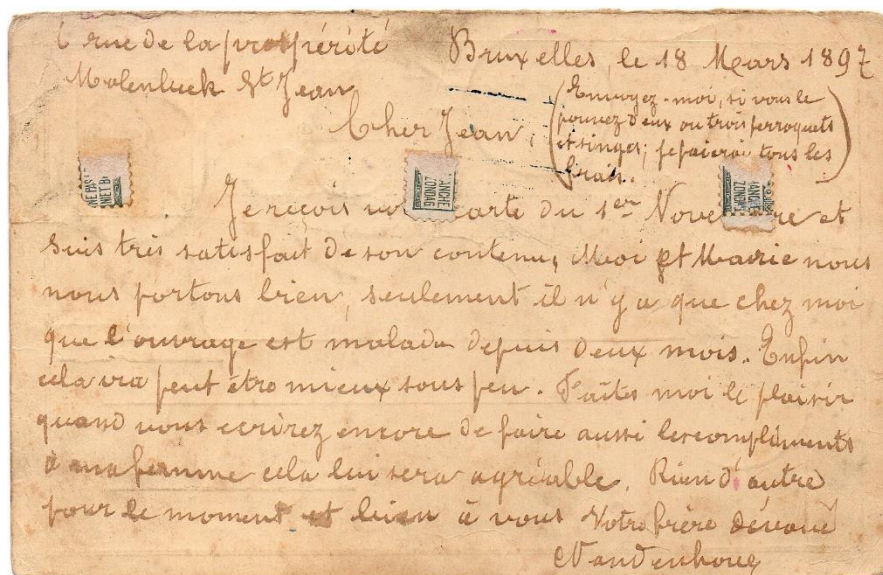 6 rue de la prospérité Bruxelles, le 18 Mars 1897
Molenbeek St Jean
Cher Jean,
(Envoyez-moi, si vous le
pouvez deux ou trois perroquets
et singes; je paierai tous les
frais.)
NE PAS
ANCHE
ZONDAG
ANCHE
Je reçois carte du 1er et
suis très satisfait de son contenu, Moi et Marie nous
nous portons bien, seulement il n'y a que chez moi
que l'ouvrage est malade depuis deux mois. Enfin
cela ira peut être mieux sous peu. Faites moi le plaisir
quand vous ecrirez encore de faire aussi les compliments
à ma femme cela lui sera agréable. Rien d'autre
pour le moment et bien à vous Votre frère dévoué